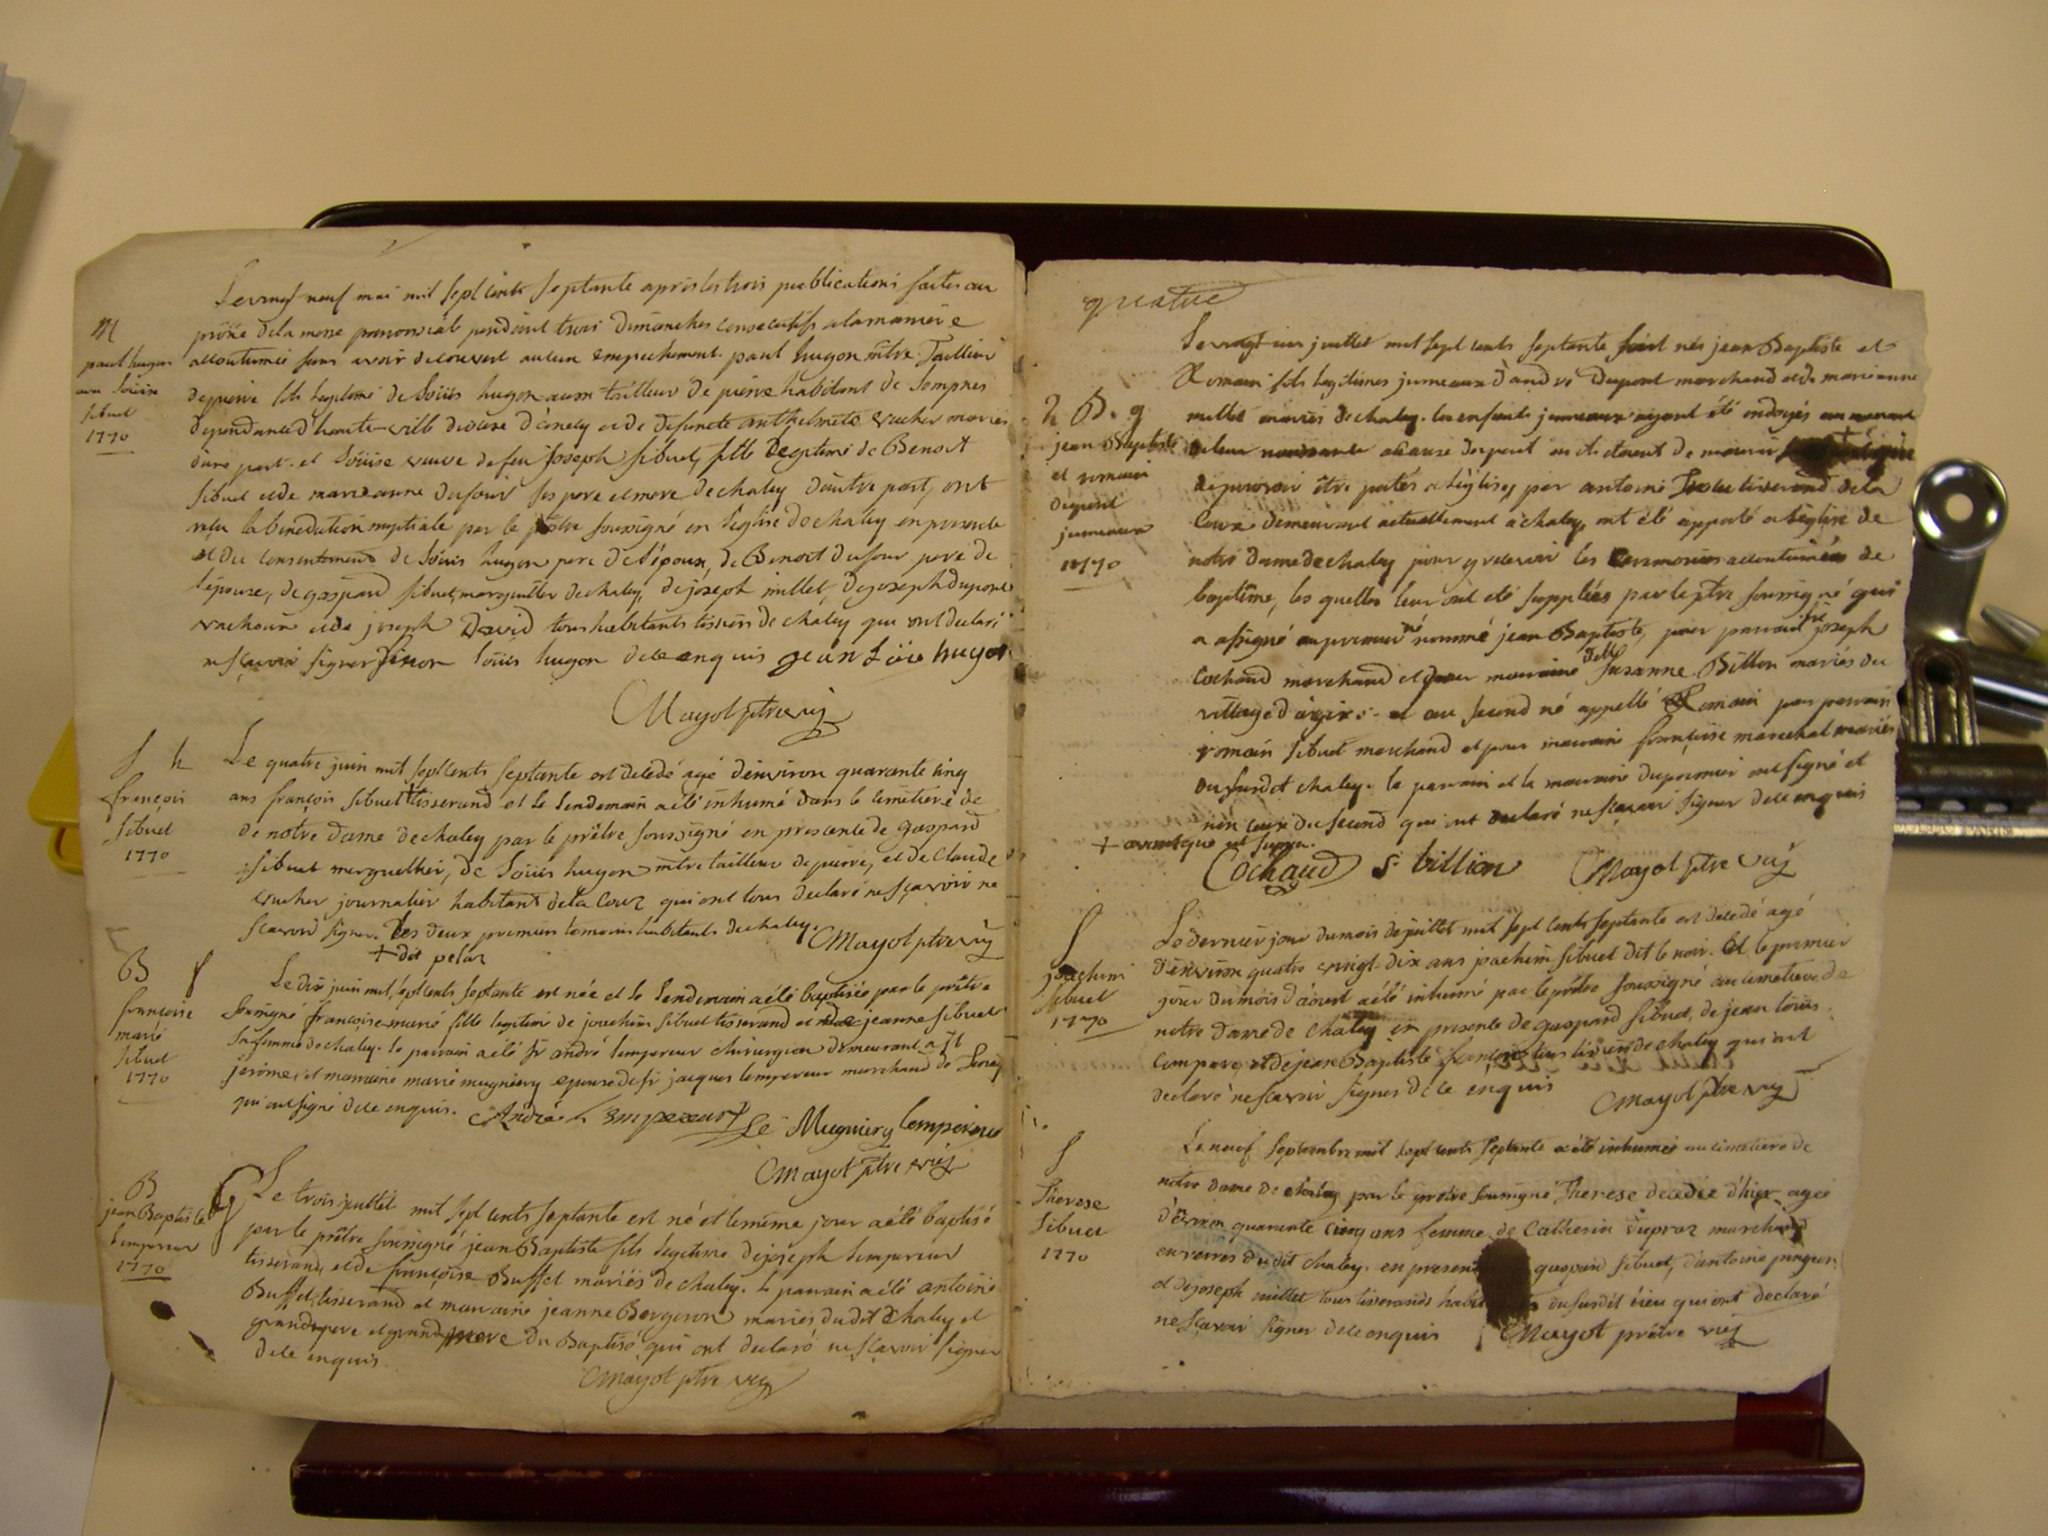 M
paul hugon
avec Loüise
sibuet
1770
Le vingt neuf mai mil sept cents septante après les trois publications faites au
prône de la messe paroissiale pendant trois dimanches consecutifs a la maniere
accoutumée sans avoir decouvert aucun empechement. paul hugon mtre Tailleur
de pierre fils legitime de Loüis hugon aussi tailleur de pierre habitant de
dependance d'haute-ville diocese d'anecy et de defuncte anthelmette vucher mariés
d'une part. et Loüise veuve de feu Joseph sibuet, fille legitime de Benoit
sibuet et de marieanne dufour ses pere et mere de chaley d'autre part, ont
reçu la benediction nuptiale par le prêtre soussigné en l'eglise de chaley en presence
et du consentement de Loüis hugon pere de l'époux, de Benoit dufour pere de
l'epouse, de gaspard sibuet, marguillier de chaley, de joseph millet, de joseph dupont
vacheur et de joseph David tous habitants tissiers de chaley qui ont declaré
ne sçavoir signer sinon Loüis hugon de ce enquis jean Loüis hugon
Mayot ptre vic
S h
françois
sibuet
1770
Le quatre juin mil sept cents septante est decedé agé d'environ quarante cinq
ans françois sibuet + tisserand et le lendemain a été inhumé dans le cimetiere de
de notre dame de chaley par le prêtre soussigné en presence de gaspard
sibuet merguellier, de Loüis hugon mtre tailleur de pierre, et de Claude
vucher journalier habitant de la Cour qui ont tous declaré ne sçavoir ne
scavoir signer. Les deux premiers temoins habitants de chaley. Mayot ptre vic
+ dit
B f
françoise
marie
sibuet
1770
Le dix juin mil sept cents septante est née et le lendemain a été baptisée par le prêtre
soussigné françoise-marie fille legitime de joachim sibuet tisserand et de jeanne sibuet
sa femme de chaley. le parrain a été sr andré lempereur chirurgien demeurant a st
jerôme, et marraine marie mugniery epouse de sr jacques lempereur marchand de
qui ont signé de ce enquis. André Lempereur Mugniery lempereur
Mayot ptre vic
B g
jean Baptiste
lempereur
1770
Le trois juillet mil sept cents septante est né et le même jour a été baptisé
par le prêtre soussigné jean Baptiste fils legitime de joseph lempereur
tisserand, et de françoise Buffet mariés de chaley. le parrain a été antoine
Buffet, tisserand et marraine jeanne Bergeron mariés dudit chaley et
grand pere et grand mere du Baptisé qui ont declaré ne sçavoir signer
de ce enquis
Mayot ptre vic
quatre
2 B. g
jean Baptiste
et romain
dupont
jumeaux
1770
Le vingt un juillet mil sept cents septante sont nés jean Baptiste et
Romain fils legitimes jumeaux d'andré dupont marchand et de marieanne
millet mariés de chaley. les enfants jumeaux ayant été ondoyés
a leur naissance a cause du peril où ils etoient de mourir
de pouvoir être portés a l'église, par antoine tisserand de la
Cour demeurant actuellement à chaley, ont été apporté a l'église de
notre dame de chaley pour y recevoir les ceremonies accoutumées de
baptême, les quelles leur ont été supplées par le ptre soussigné qui
a assigné au premier né nommé jean Baptiste, pour parrain sr joseph
Cochaud marchand et pour marraine delle Susanne Billion mariés du
village d' et au second né appellé Romain pour parrain
romain sibuet marchand et pour marraine françoise marechal mariés
du susdit chaley. le parrain et la marraine du premier ont signé et
non ceux du second qui ont declaré ne sçavoir signer de ce enquis
+ avant que
Cochaud S billion Mayot ptre vic
S
joachim
sibuet
1770
Le dernier jour du mois de juillet mil sept cents septante est decedé agé
d'environ quatre vingt-dix ans joachim sibuet dit le noir. et le premier
jour du mois d'aoust a été inhumé par le prêtre soussigné au cimetiere de
notre dame de chaley en presence de gaspard sibuet, de jean Loüis
compare, et de jean Baptiste françon tous tissiers de chaley qui ont
declaré ne scavoir signer de ce enquis
Mayot ptre vic
S
Therese
sibuet
1770
Le neuf septembre mil sept cents septante a été inhumée au cimetiere de
notre dame de chaley par le prêtre soussigné Therese decedée d'hier agée
d'environ quarante cinq ans femme de Catherin dupraz marchand
en verres du dit chaley. en presen gaspard sibuet, d'antoine
et de joseph millet tous tisserands habi du susdit lieu qui ont declaré
ne sçavoir signer de ce enquis Mayot prêtre vic